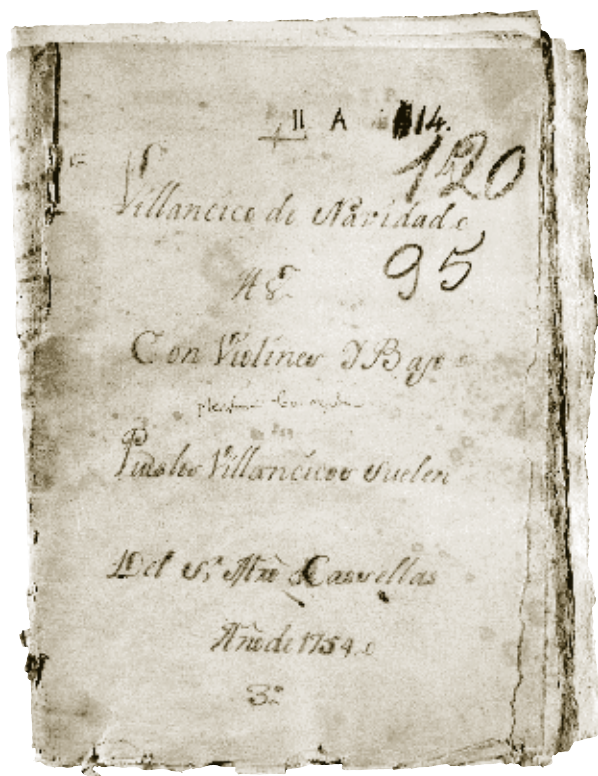 II A 114.
120
Villancico de Navidad
95
A 8
Con Violines Y Bajo
Pues los Villancicos suelen
Del Sr. Mro Casellas
Año de 1754.
3º